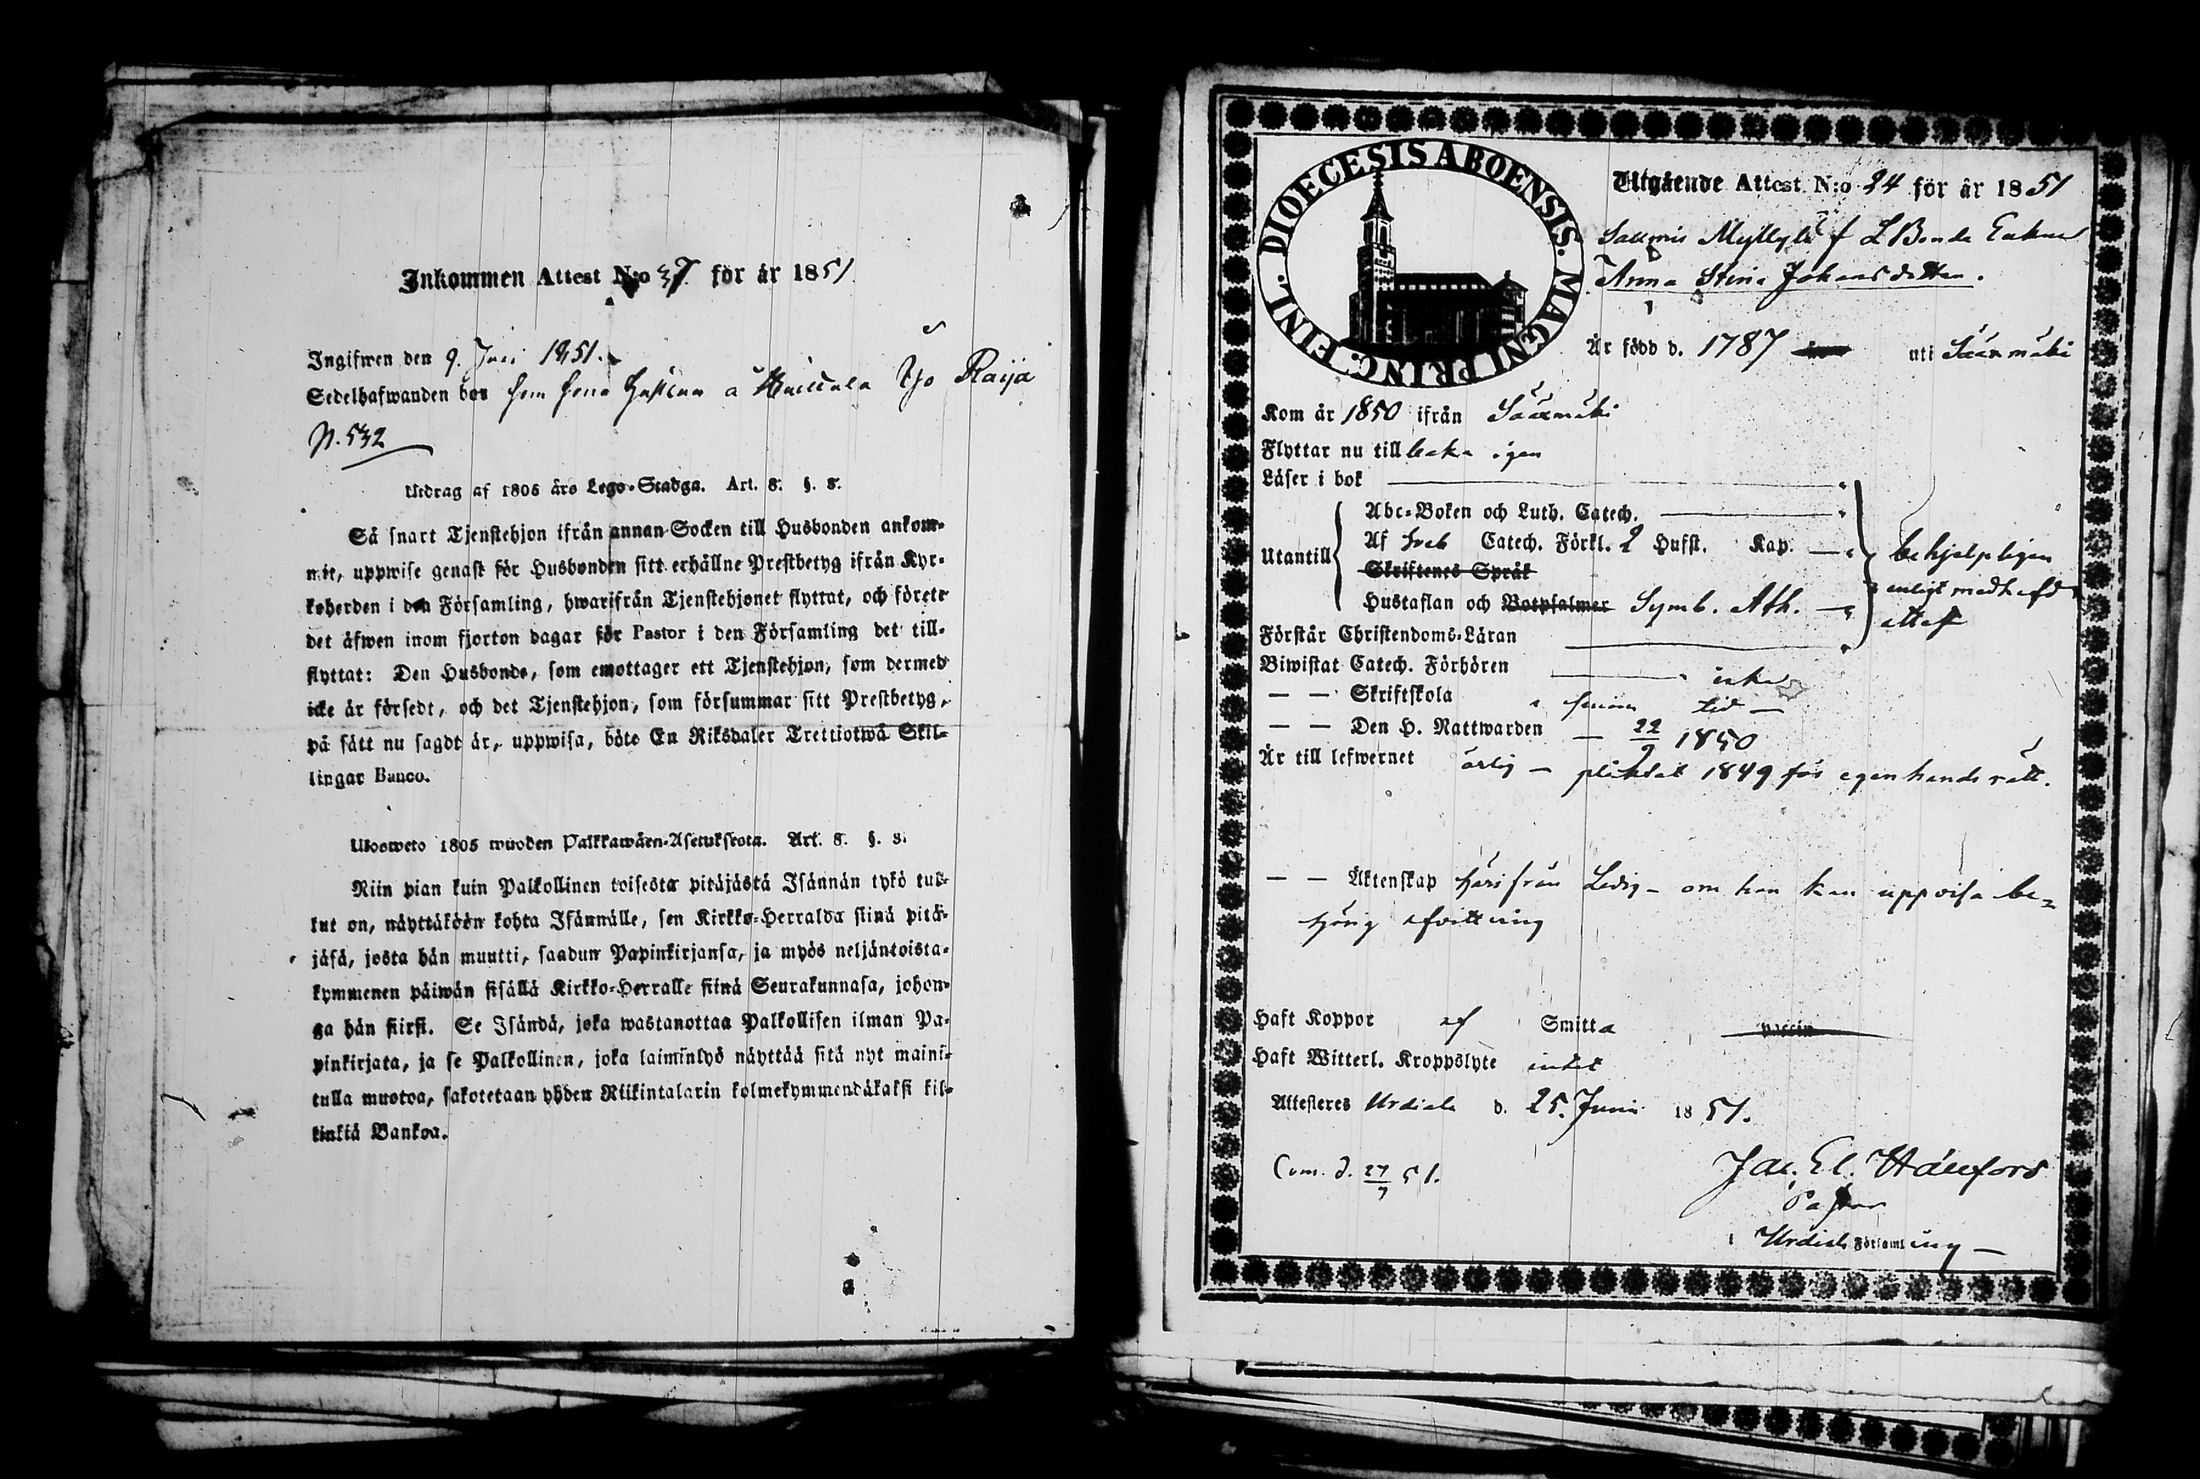 Inkommen Attest N:o 37. för år 1851
Ingifwen den 9. Juli 1851.
Sedelhafwanden bor hem hona å Huittula Yjo Raija
N. 532
Utdrag af 1805 års Lego-Stadga. Art. 8. §. 8.
Så snart Tjenstehjon ifrån annan Socken till Husbonden ankom-
mit, uppwise genast för Husbonden sitt erhållne Prestbetyg ifrån Kyr-
koherden i den Församling, hwarifrån Tjenstehjonet flyttat, och förete
det äfwen inom fjorton dagar för Pastor i den Församling det till-
flyttat: Den Husbonde, som emottager ett Tjenstehjon, som dermed
icke är försedt, och det Tjenstehjon, som försummar sitt Prestbetyg,
på sätt nu sagdt är, uppwisa, böte En Riksdaler Trettiotwå Skil-
lingar Banco.
Uloosweto 1805 wuoden Palkkawäen-Asetuksesta. Art. 8. §. 8.
Niin pian kuin Palkollinen toisesta pitäjästä Isännän tykö tul-
lut on, näyttäköön kohta Isännälle, sen Kirkko-Herralda siinä pitä-
jäsä, josta hän muutti, saadun Papinkirjansa, ja myös neljäntoista-
kymmenen päiwän sisällä Kirkko-Herralle siinä Seurakunnasa, johon-
ga hän siirsi. Se Isändä, joka wastanottaa Palkollisen ilman Pa-
pinkirjata, ja se Palkollinen, joka laiminlyö näyttää sitä nyt maini-
tulla muotoa, sakotetaan yhden Riikintalarin kolmekymmendäkaksi kil-
linkiä Bankoa.
DIOECESIS ABOENSIS. MAGNI PRINC. FINL.
Utgående Attest N:o 24 för år 1851
Saurmis Myllylä f L Bonde Enkan
Anna Stina Johansdotter.
Är född d. 1787 uti Sääxmäki
Kom år 1850 ifrån Sääxmäki
Flyttar nu tillbaka igen
Läser i bok
Abc-Boken och Luth. Catech.
Utantill Af Sveb Catech. Förkl. 2 Husst. Kap. behjelpligen
Skriftenes Språk enligt medhafd
Hustaflan och Botpsalmer Symb. Ath. attest
Förstår Christendoms-Läran
Biwistat Catech. Förhören
— — Skriftskola i sinom tid —
— — Den H. Nattwarden — 22/9 1850
Är till lefwernet ärlig — pliktat 1849 för egenhandsrätt.
— — Äktenskap härifrån Ledig — om hon kan uppvisa be-
hörig afvittring
Haft Koppor af Smitta vaccin
Haft Witterl. Kroppslyte intet
Attesteres Urdiala d. 25. Junii 1851.
Com. d. 27/7 51.
Jac. El. Hällfors
Pastor
i Urdiala Församling —